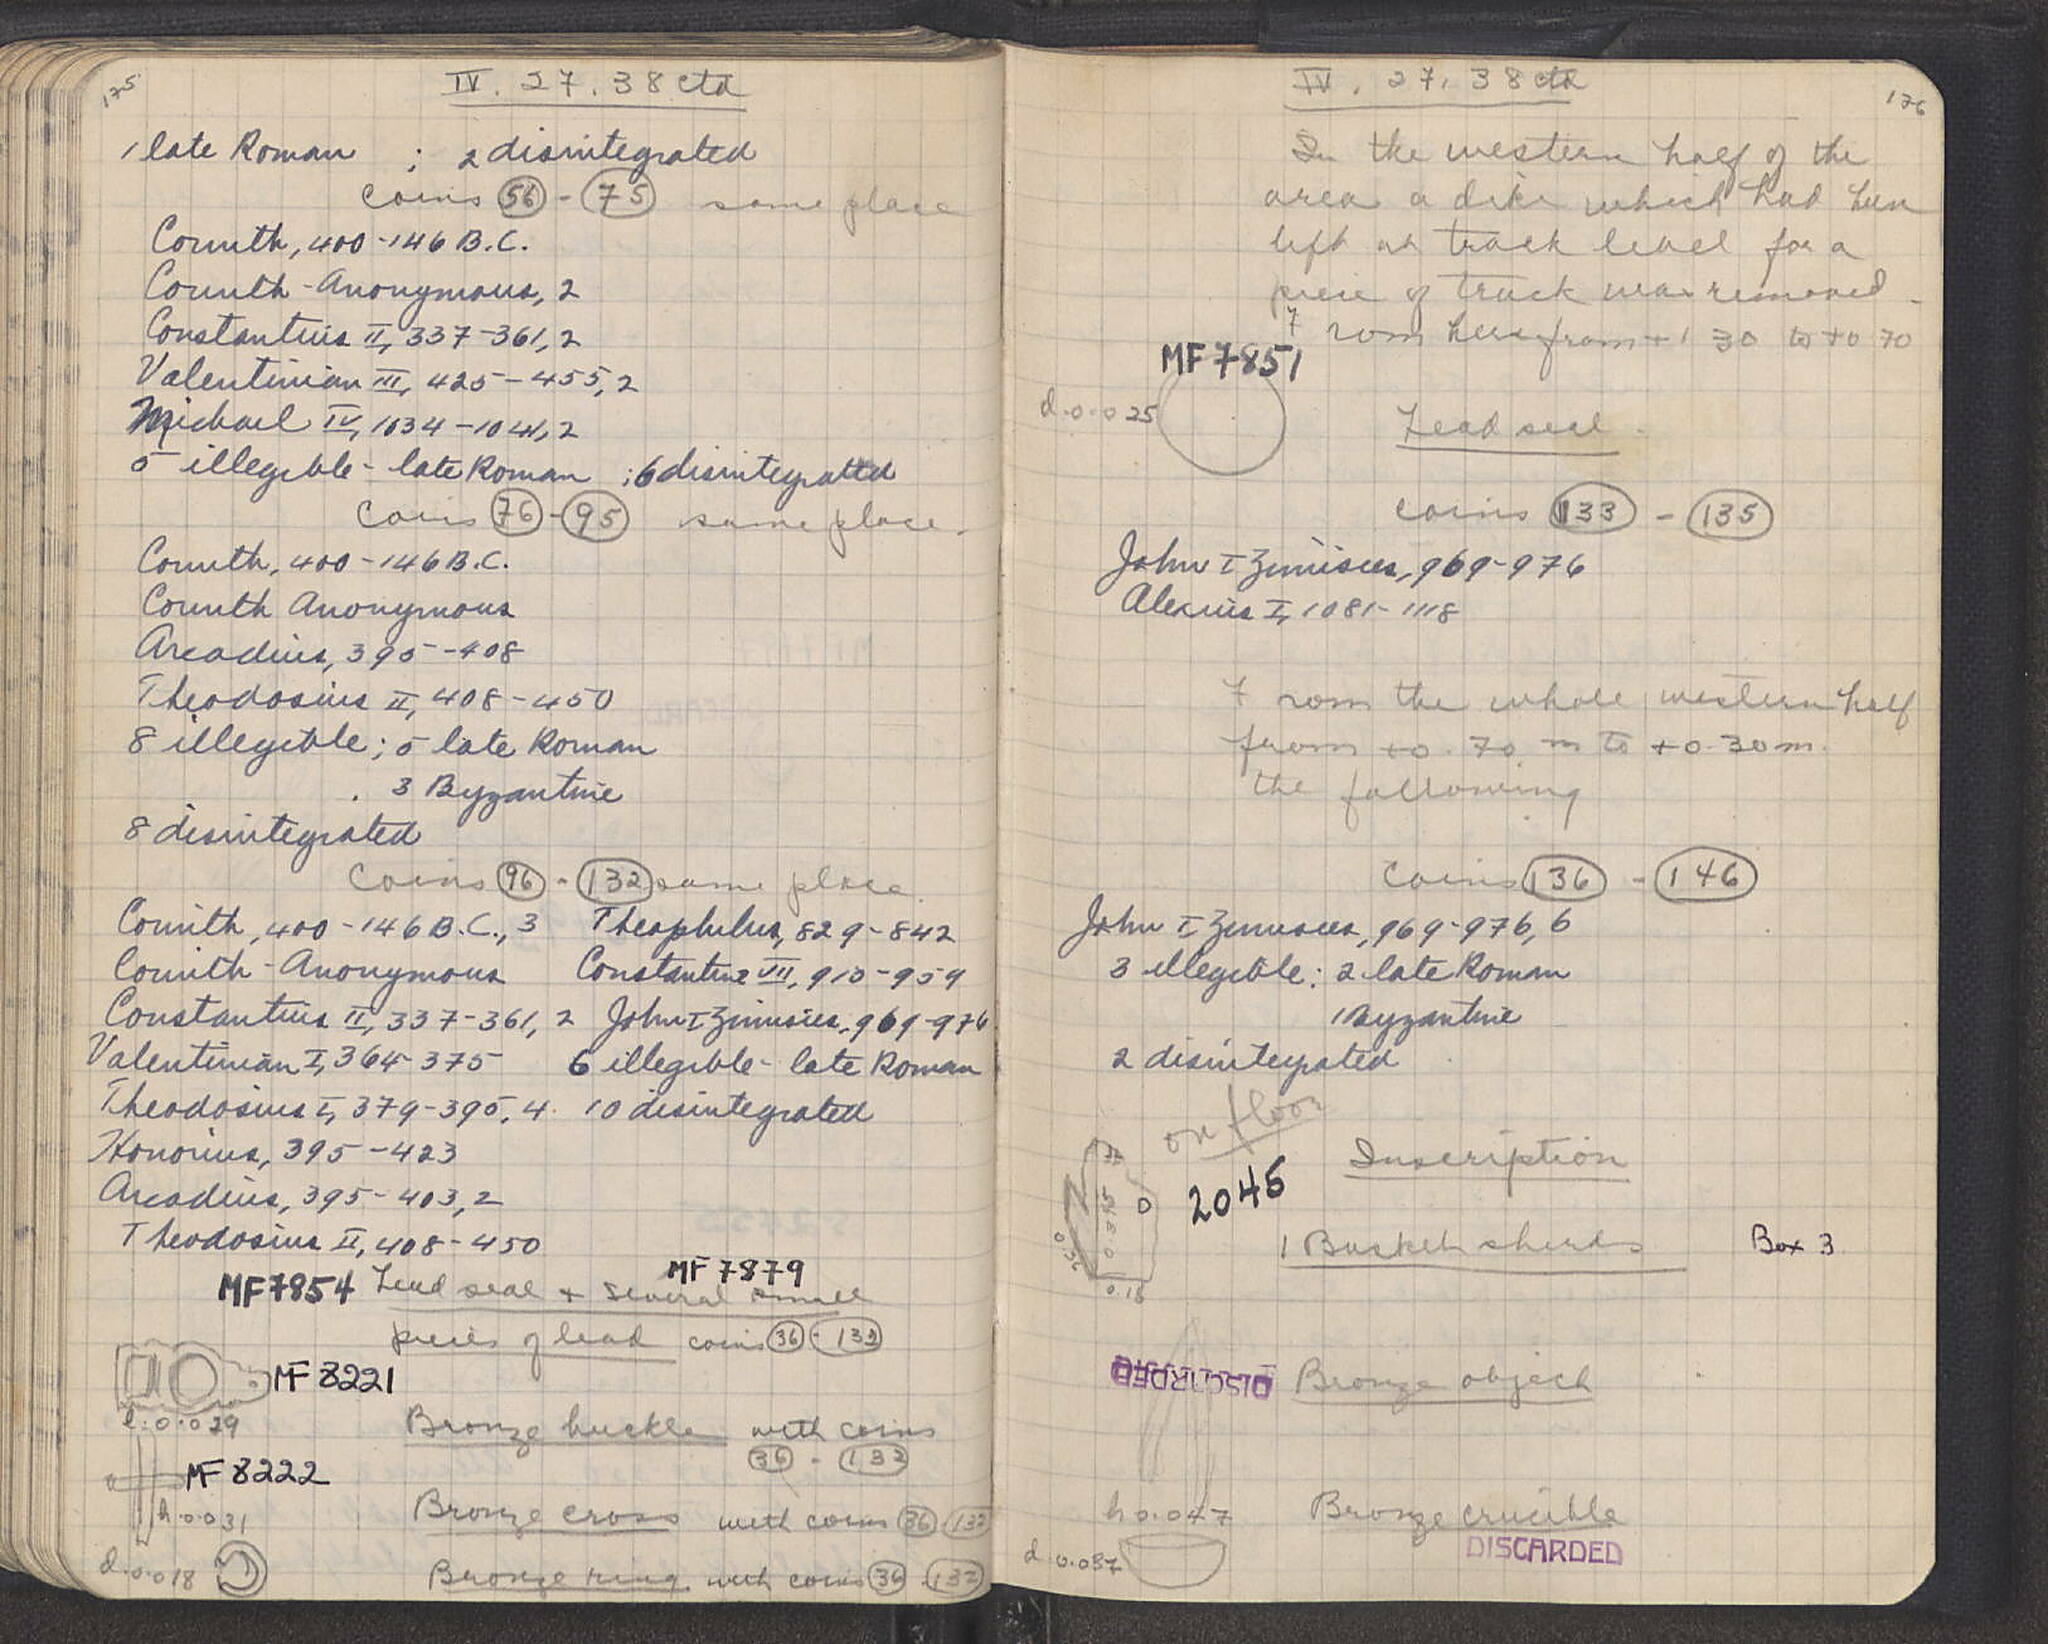 175
IV. 27. 38 ctd
1 late Roman ; 2 disintegrated
coins 56 - 75 same place
Corinth, 400-146 B.C.
Corinth-Anonymous, 2
Constantius II, 337-361, 2
Valentinian III, 425-455, 2
Michael IV, 1034-1041, 2
5 illegible - late Roman ; 6 disintegrated
Coins 76 - 95 same place.
Corinth, 400-146 B.C.
Corinth Anonymous
Arcadius, 395-408
Theodosius II, 408-450
8 illegible; 5 late Roman
3 Byzantine
8 disintegrated
Coins 96 - 132 same place
Corinth, 400-146 B.C., 3 Theophilus, 829-842
Corinth-Anonymous Constantine VII, 913-959
Constantius II, 337-361, 2 John I Zimisces, 969-976
Valentinian I, 364-375 6 illegible - late Roman
Theodosius I, 379-395, 4. 10 disintegrated
Honorius, 395-423
Arcadius, 395-403, 2
Theodosius II, 408-450
MF 7879
MF 7854 Lead seal + several small
pieces of lead coins 36 - 132
MF 8221
l. 0.029 Bronze buckle with coins
36 - 132
MF 8222
h 0.031 Bronze cross with coins 36 132
d. 0.018 Bronze ring with coins 36 132
176
IV. 27. 38 ctd
In the western half of the
area a dike which had been
left at track level for a
piece of track was removed.
From here from +1 30 to +0 70
MF 7851
d. 0.025 Lead seal.
coins 133 - 135
John I Zimisces, 969-976
Alexius I, 1081-1118
From the whole western half
from +0.70 m to +0.30 m.
the following
Coins 136 - 146
John I Zimisces, 969-976, 6
3 illegible: 2 late Roman
1 Byzantine
2 disintegrated
on floor
Inscription
2045
0.18
1 Basket sherds Box 3
DISCARDED Bronze object
h 0.047 Bronze crucible
DISCARDED
d 0.037